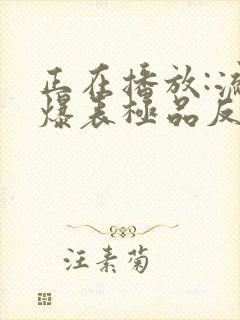 正在播放:流
爆表極品反
汪素菊